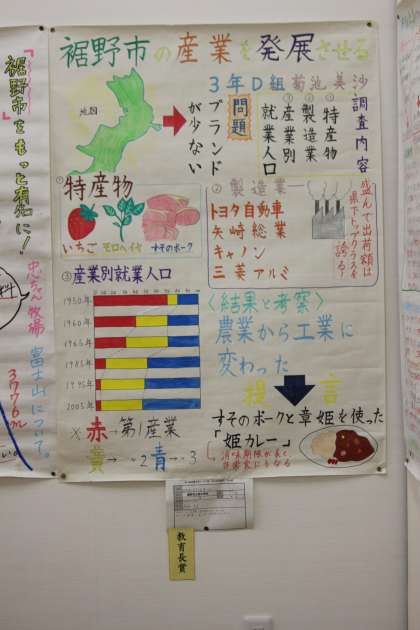 裾野市の産業を発展させる
3年D組 菊池 美沙
地図
問題
ブランドが少ない
調査内容
①特産物
②製造業
③産業別就業人口
①特産物
いちご
モロヘイヤ
すそのポーク
②製造業
トヨタ自動車
矢崎総業
キャノン
三菱アルミ
盛んで出荷額は
県下トップクラスを
誇る!
③産業別就業人口
1950年
1960年
1965年
1985年
1995年
2005年
※赤→第1産業
黄→〃2 青→〃3
〈結果と考察〉
農業から工業に
変わった
提言
すそのポークと章姫を使った
「姫カレー」
消味期限が長く、
教育長賞
『裾野市をもっと有名に!』
牧場
富士山について。
3776m